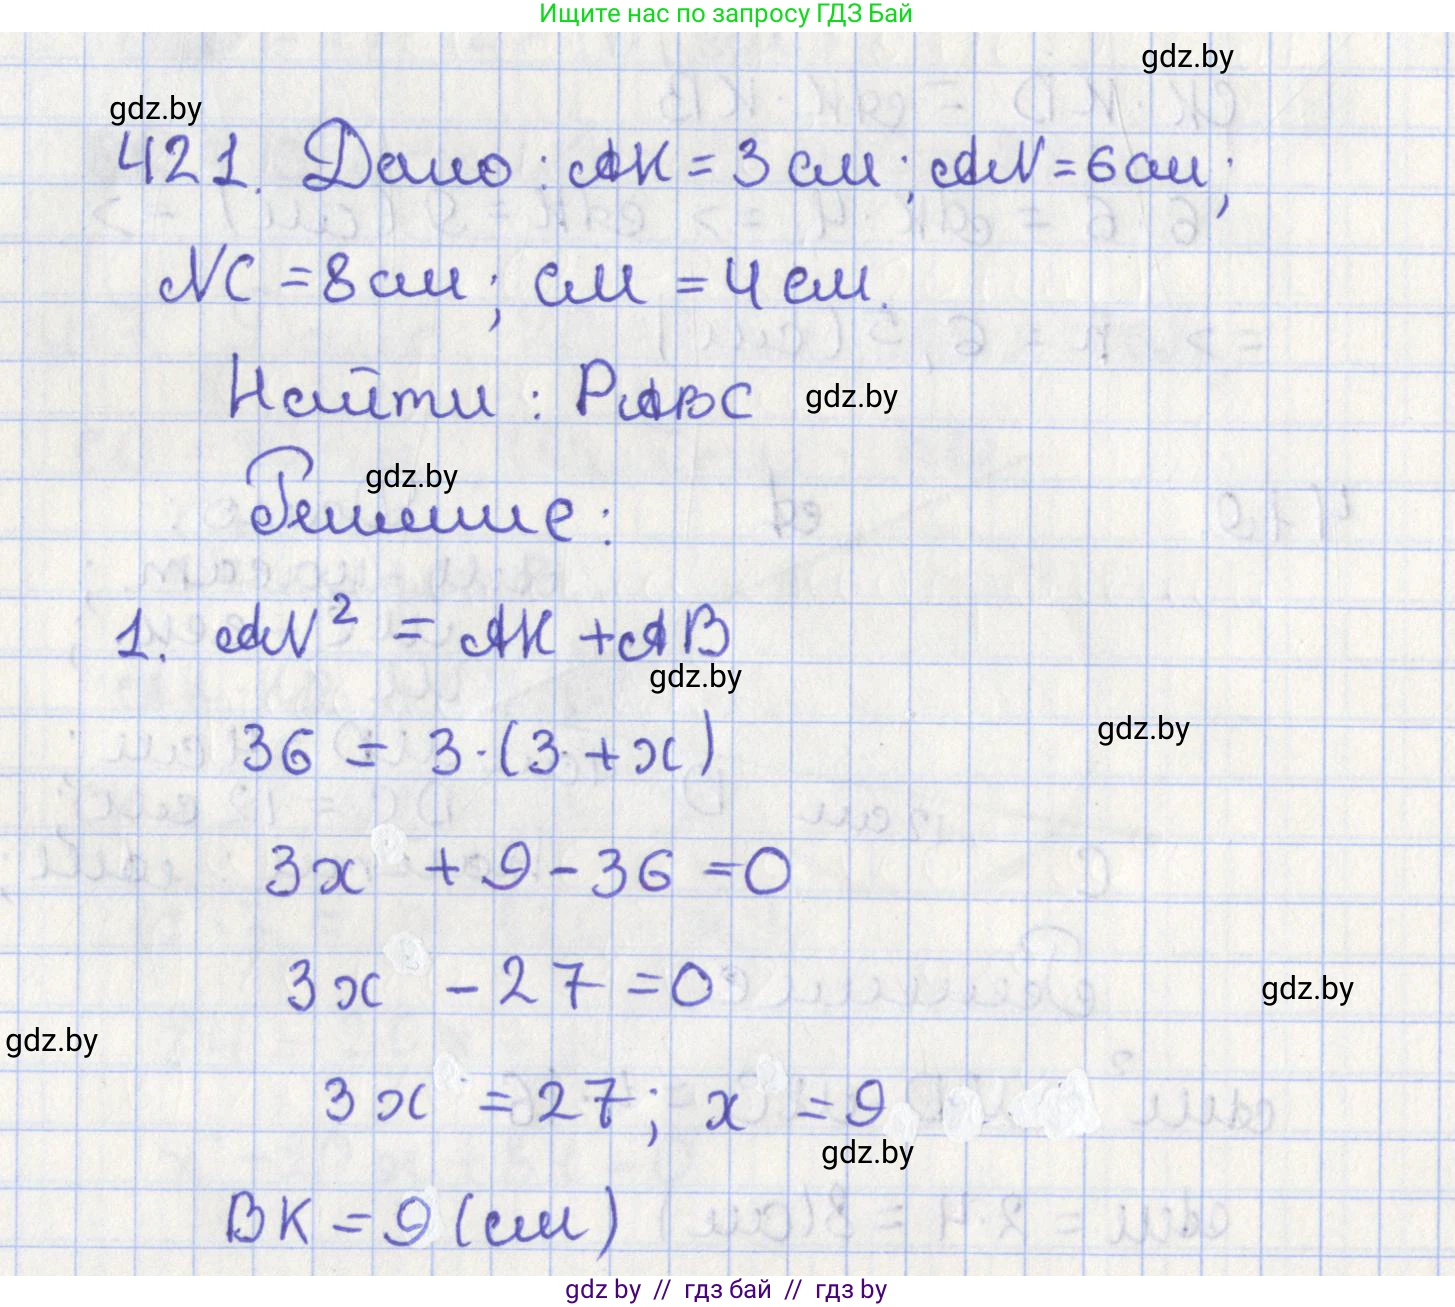 Ищите нас по запросу ГДЗ Бай
gdz.by
gdz.by
421. Дано: AK = 3 см; AN = 6 см;
NC = 8 см; CM = 4 см.
Найти: PABC
gdz.by
gdz.by
Решение:
1. AN² = AK + AB
gdz.by
gdz.by
36 = 3·(3 + x)
3x + 9 - 36 = 0
3x - 27 = 0
gdz.by
gdz.by
3x = 27; x = 9
gdz.by
BK = 9 (см)
gdz by // гдз бай // гдз by